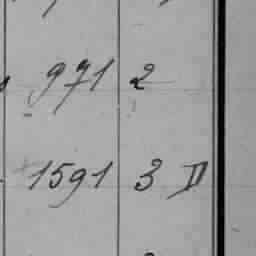 971 2
1591 3 D